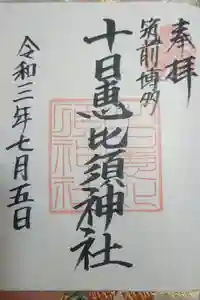 奉拝
筑前博多
十日恵比須神社
令和三年七月五日